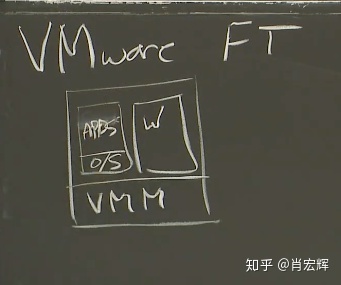 VMware FT
APPS
W
O/S
VMM
知乎 @肖宏辉